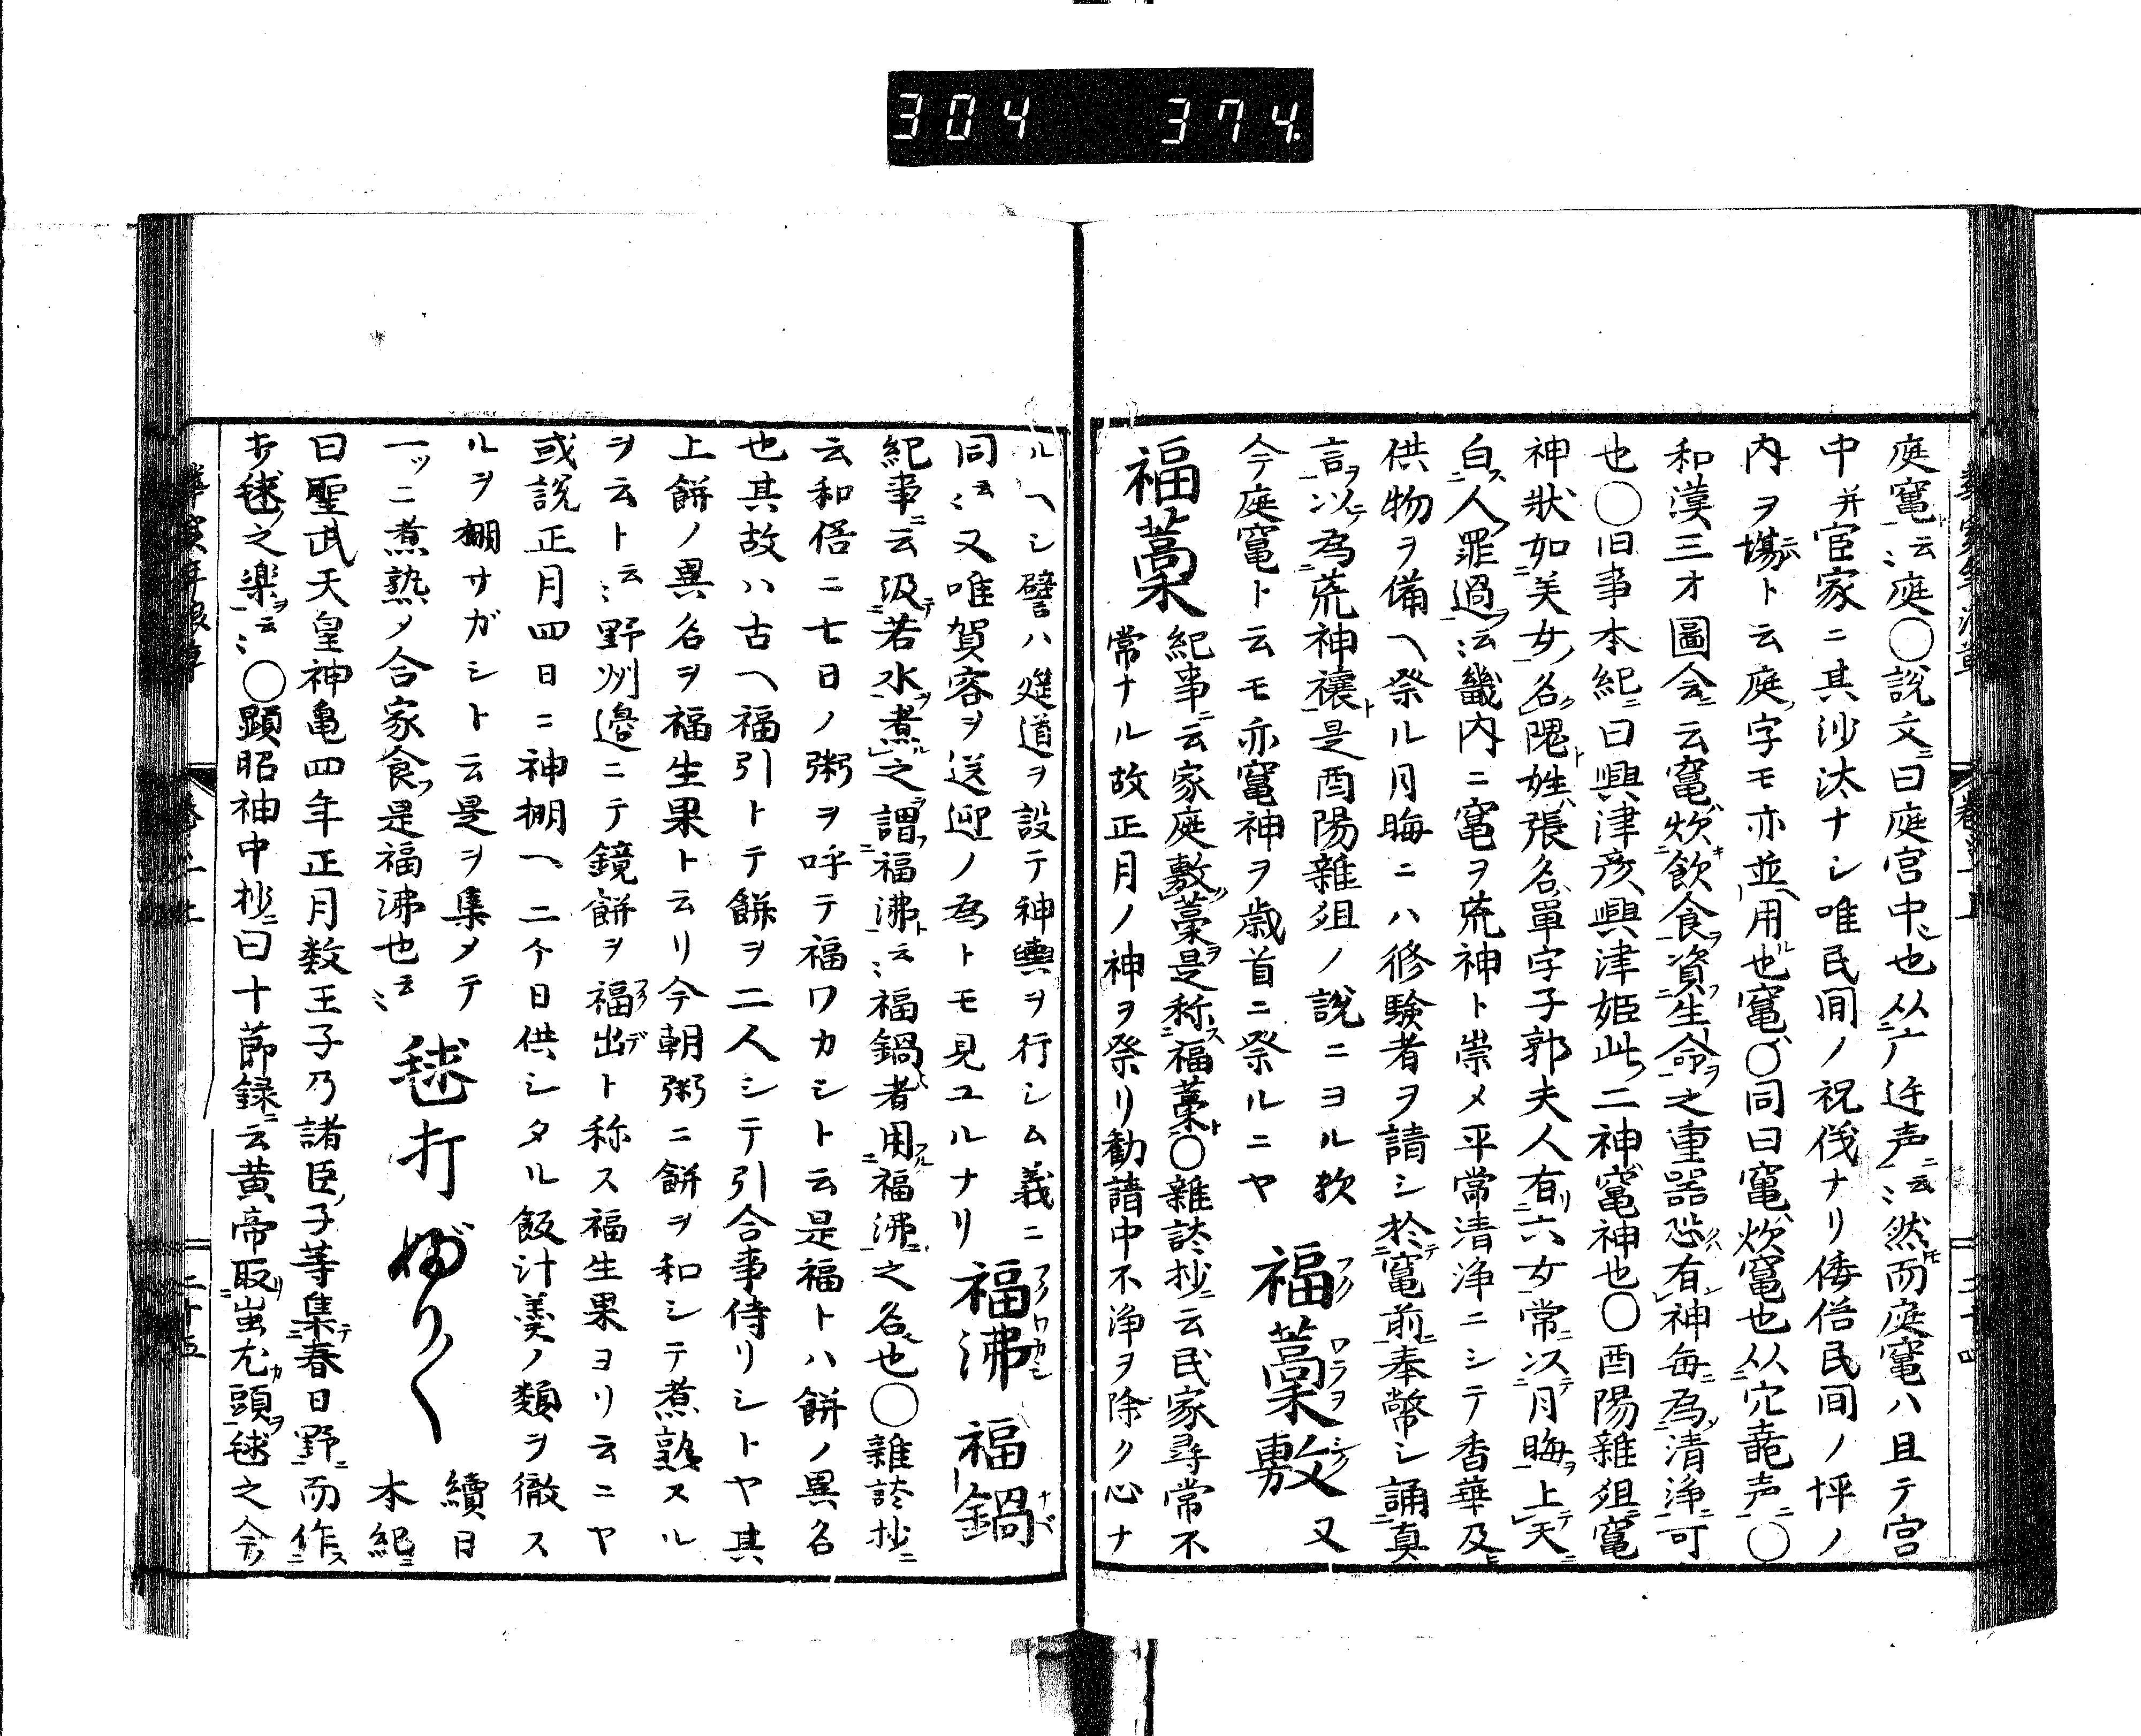 304 374.
庭竃云〻庭〇說文ニ曰庭宮中也从广廷声云〻然而庭竃ハ且テ宮
中并官家ニ其沙汰ナシ唯民間ノ祝伐ナリ倭俗民间ノ坪ノ
内ヲ塲ト云庭ノ字モ亦並用也竃〇同曰竃炊竃也从穴鼀声〇
和漢三才圖会ニ云竃炊飲食資生命之重器恐有神每為清浄可
也〇旧事本紀ニ曰興津彦興津姫此二神竃神也〇酉陽雜俎ニ竃
神狀如美女名隗姓張名單字子郭夫人有六女常以月晦上天
白人罪過云〻畿内ニ竃ヲ荒神ト崇メ平常清浄ニシテ香華及
供物ヲ備ヘ祭ル月晦ニハ修験者ヲ請シ於竃前奉幣シ誦真
言以為荒神禳是酉陽雜俎ノ說ニヨル欤 福藁敷 又
今庭竃ト云モ亦竃神ヲ歳首ニ祭ルニヤ
福藁 紀事ニ云家庭敷藁是称福藁〇雜談抄ニ云民家尋常不
常ナル故正月ノ神ヲ祭リ勧請中不浄ヲ除ク心ナ
ルヘシ譬ハ筵道ヲ設テ神輿ヲ行シム義ニ
同云〻又唯賀客ヲ送迎ノ為トモ見ユルナリ 福沸 福鍋
紀事ニ云汲若水煮之謂福沸云〻福鍋者用福沸之名也〇雜談抄ニ
云和俗ニ七日ノ粥ヲ呼テ福ワカシト云是福トハ餅ノ異名
也其故ハ古ヘ福引トテ餅ヲ二人シテ引合事侍リシトヤ其
上餅ノ異名ヲ福生果ト云リ今朝粥ニ餅ヲ和シテ煮熟スル
ヲ云ト云〻野州邊ニテ鏡餅ヲ福出ト称ス福生果ヨリ云ニヤ
或說正月四日ニ神棚ヘ二今日供シタル飯汁羹ノ類ヲ徹ス
ルヲ棚サガシト云是ヲ集メテ
一ッニ煮熟ノ合家食是福沸也云〻 毬打 ぶり〱 續日本紀ニ
曰聖武天皇神亀四年正月数王子乃諸臣子等集春日野而作
打毬之楽云〻〇顕昭袖中抄ニ曰十莭録ニ云黄帝取蚩尤頭毬之今
二十五